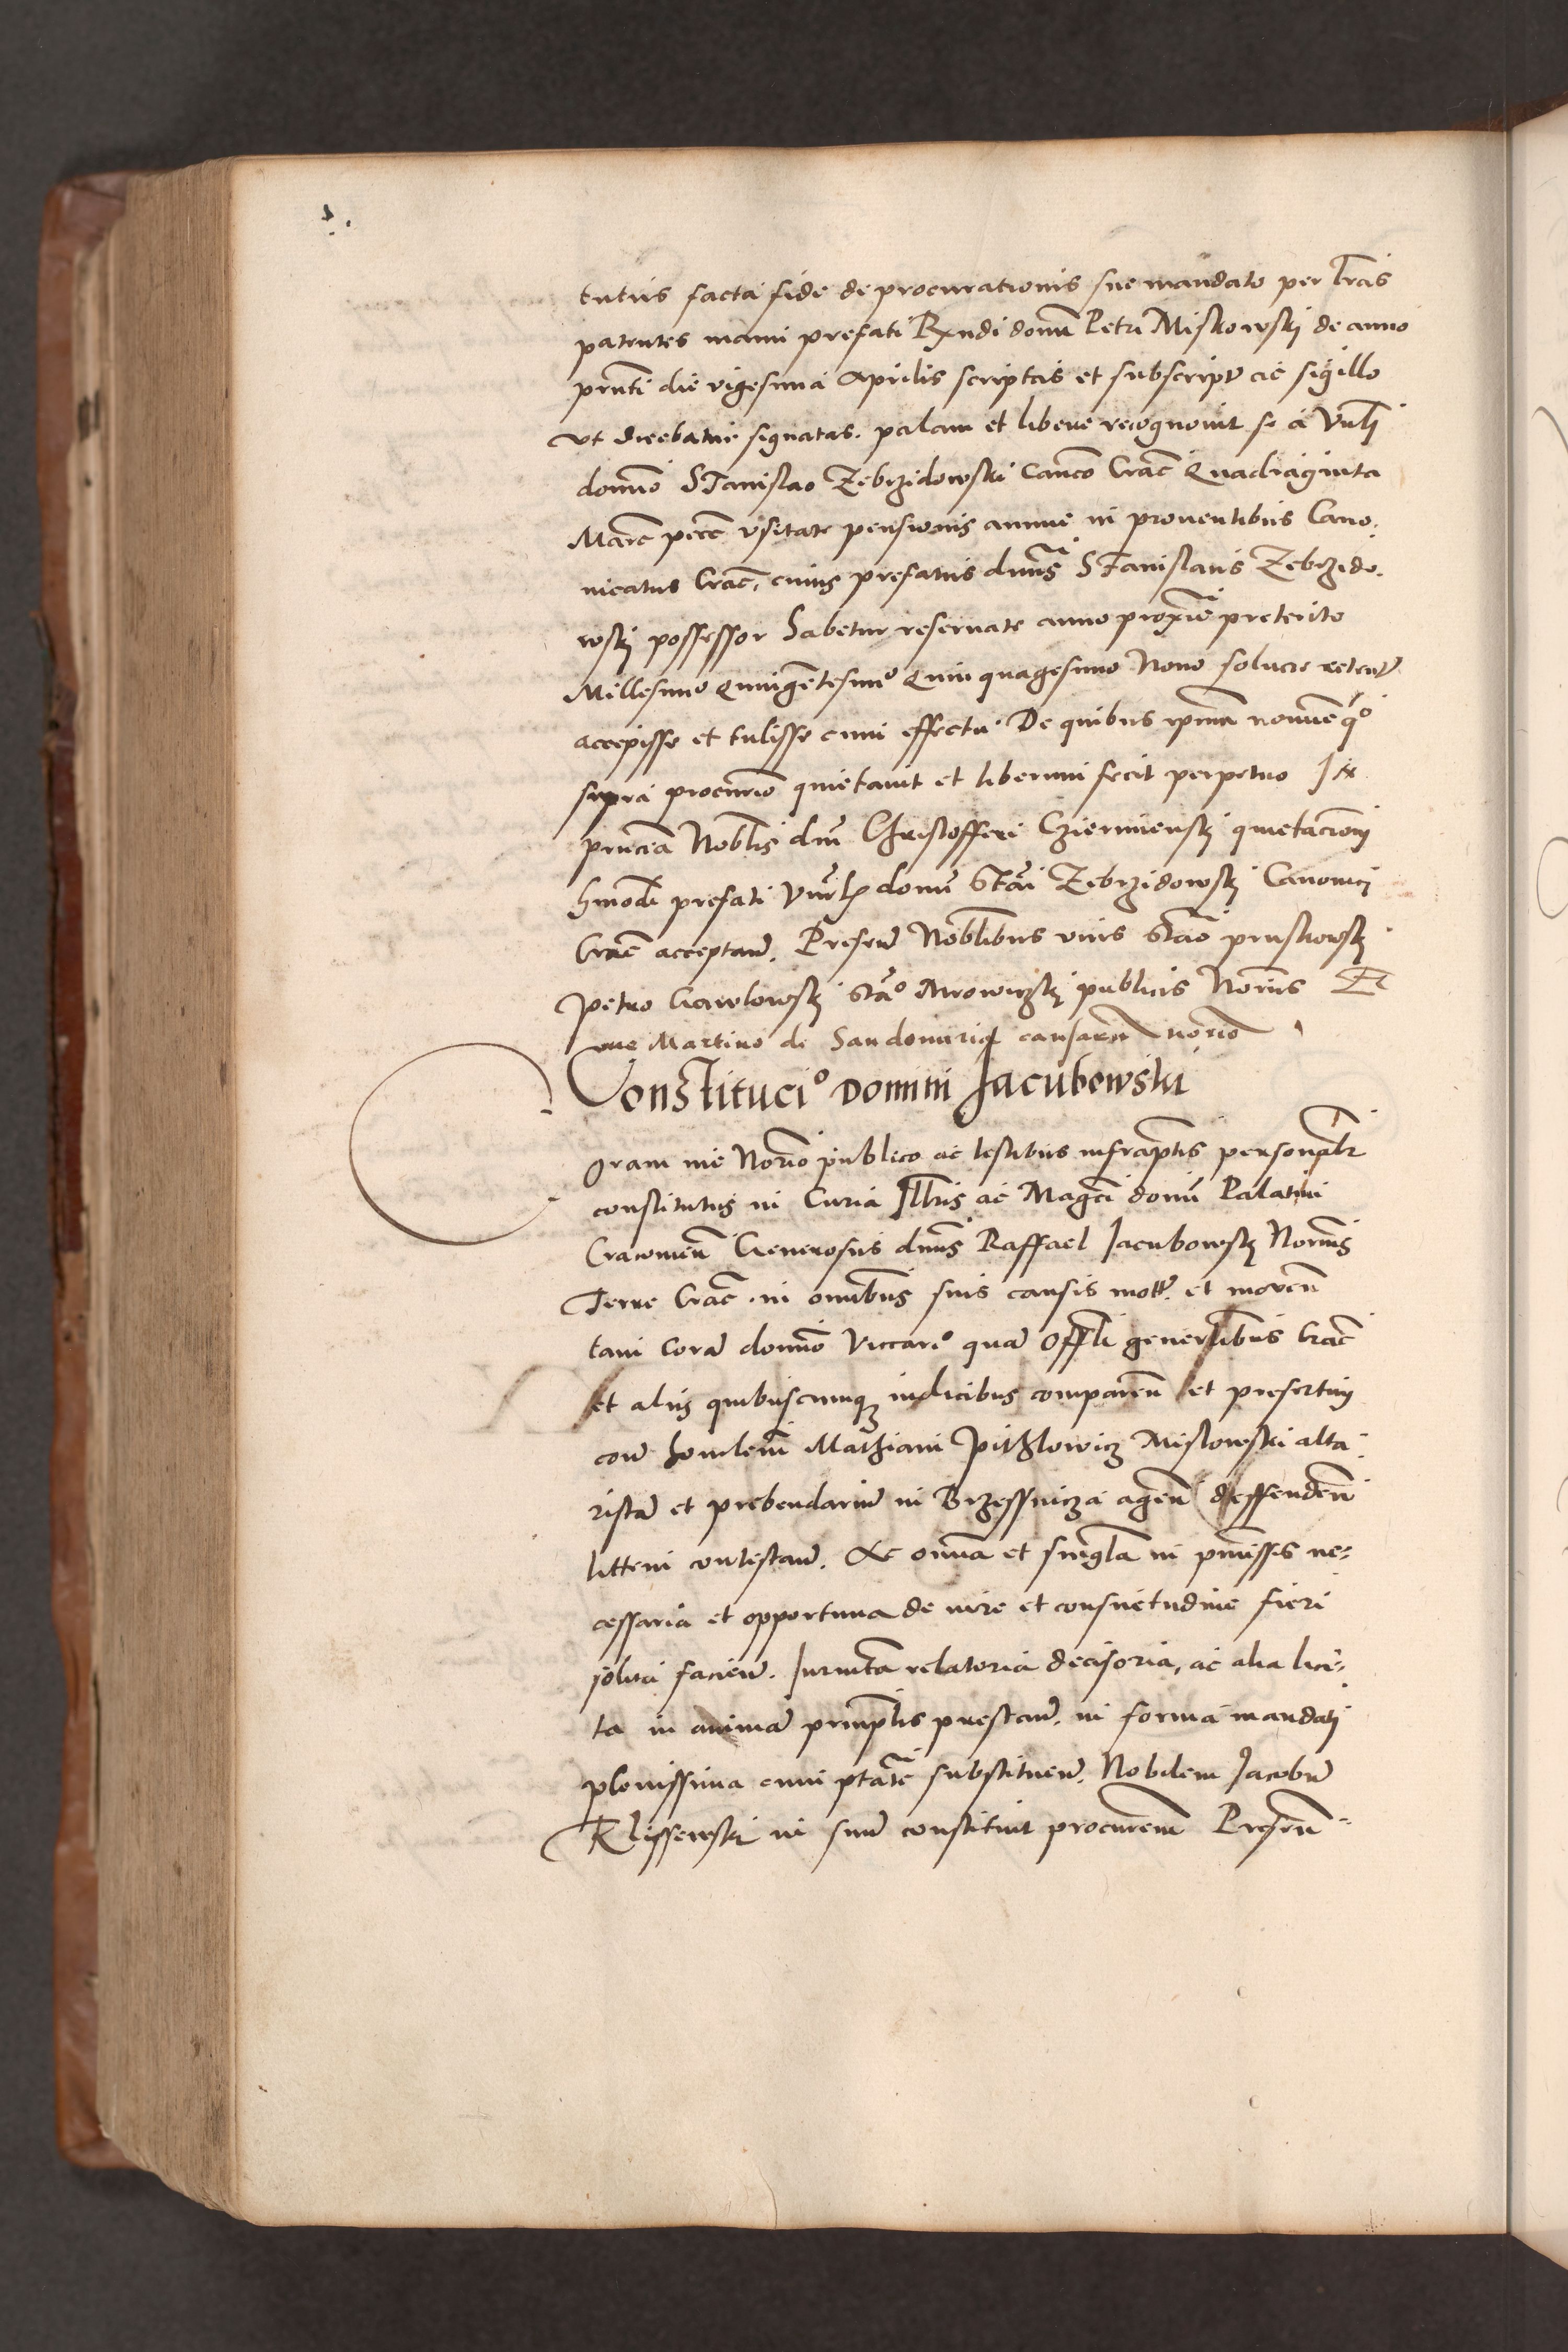 tutus facta fide de procurationis sue mandato per lras
patentes manu prefati Rxndi domi Petri Miskowskj de anno
pnti die vigesima Aprilis scriptas et subscript ac sigillo
vt dicebatur signatas. palam et libere recognouit se a Vnlj
domino Stanislao Zebrzidowski Canco Crac Quadraginta
Marc pecc vsitate pensionis annue in prouentibus Cano.
nicatus Crac, cuius prefatus dnns Stanislaus Zebrzido.
wskj possessor habetur reseruate anno proxime preterito
Millesimo Quingentesimo Quinquagesimo Nono solucre
accepisse et tulisse cum effectu. De quibus ipsum nomine qo
supra procurio quietauit et liberum fecit perpetuo In
pnncia Noblis dni Christofferi Czierminskj quietacionj
hmodi prefati Vnrlis domi Stai Zebrzidowskj Canonici
Crac acceptan. Presen Noblibus viris Stao pruskowskj
Petro Gawlowskj Stao Mrowinskj publicis Noriis Et
me Martino de Sandomiria causarum norio
Constitucio Domini Jacubowski
Coram me Norio publico ac testibus infraptis personalr
constitutus in Curia Illris ac Magci domi Palatini
Cracouien Generosus dnns Raffael Jacubowskj Norius
Terre Crac. in omnibus suis causis mott. et mouen
tam Cora domino Viccario quam Offli generalibus Crac
et aliis quibuscumque iudicibus comparen et presertim
con honlem Mathiam Pithlowicz Mislowski alta
rista et prebendariu in Brzessnicza agen deffenden
littem contestan. Ac omnia et singla in pmissis ne-
cessaria et opportuna de iure et consuetudine fieri
solita facien. Iurmta relatoria decisoria, ac alia lici-
ta in anima principlis prestan. in forma mandatj
plenissima cum ptate substituen. Nobilem Jacobu
Klissewski in suu constituit procurem Presen-